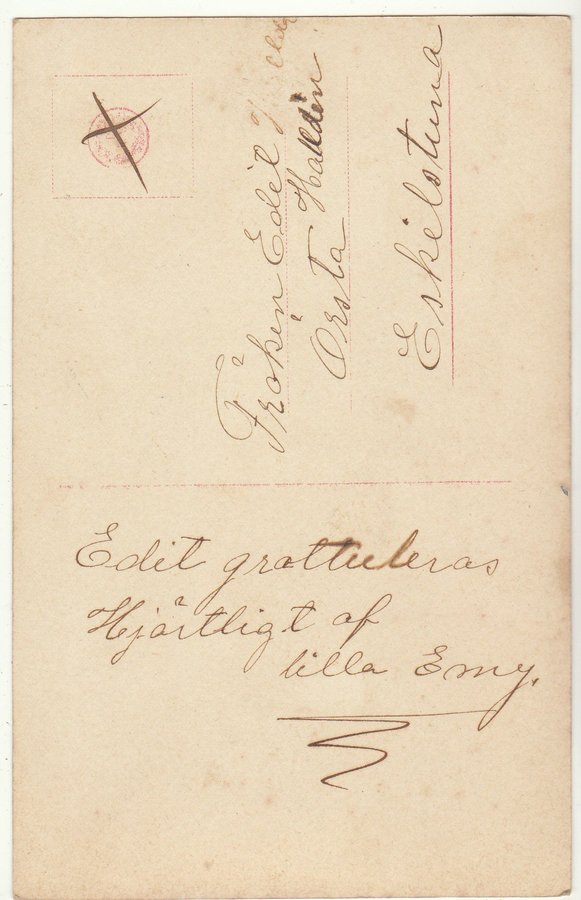 Fröken Edit
Orsta Halldin
Eskilstuna
Edit grattuleras
Hjärtligt af
lilla Emy.